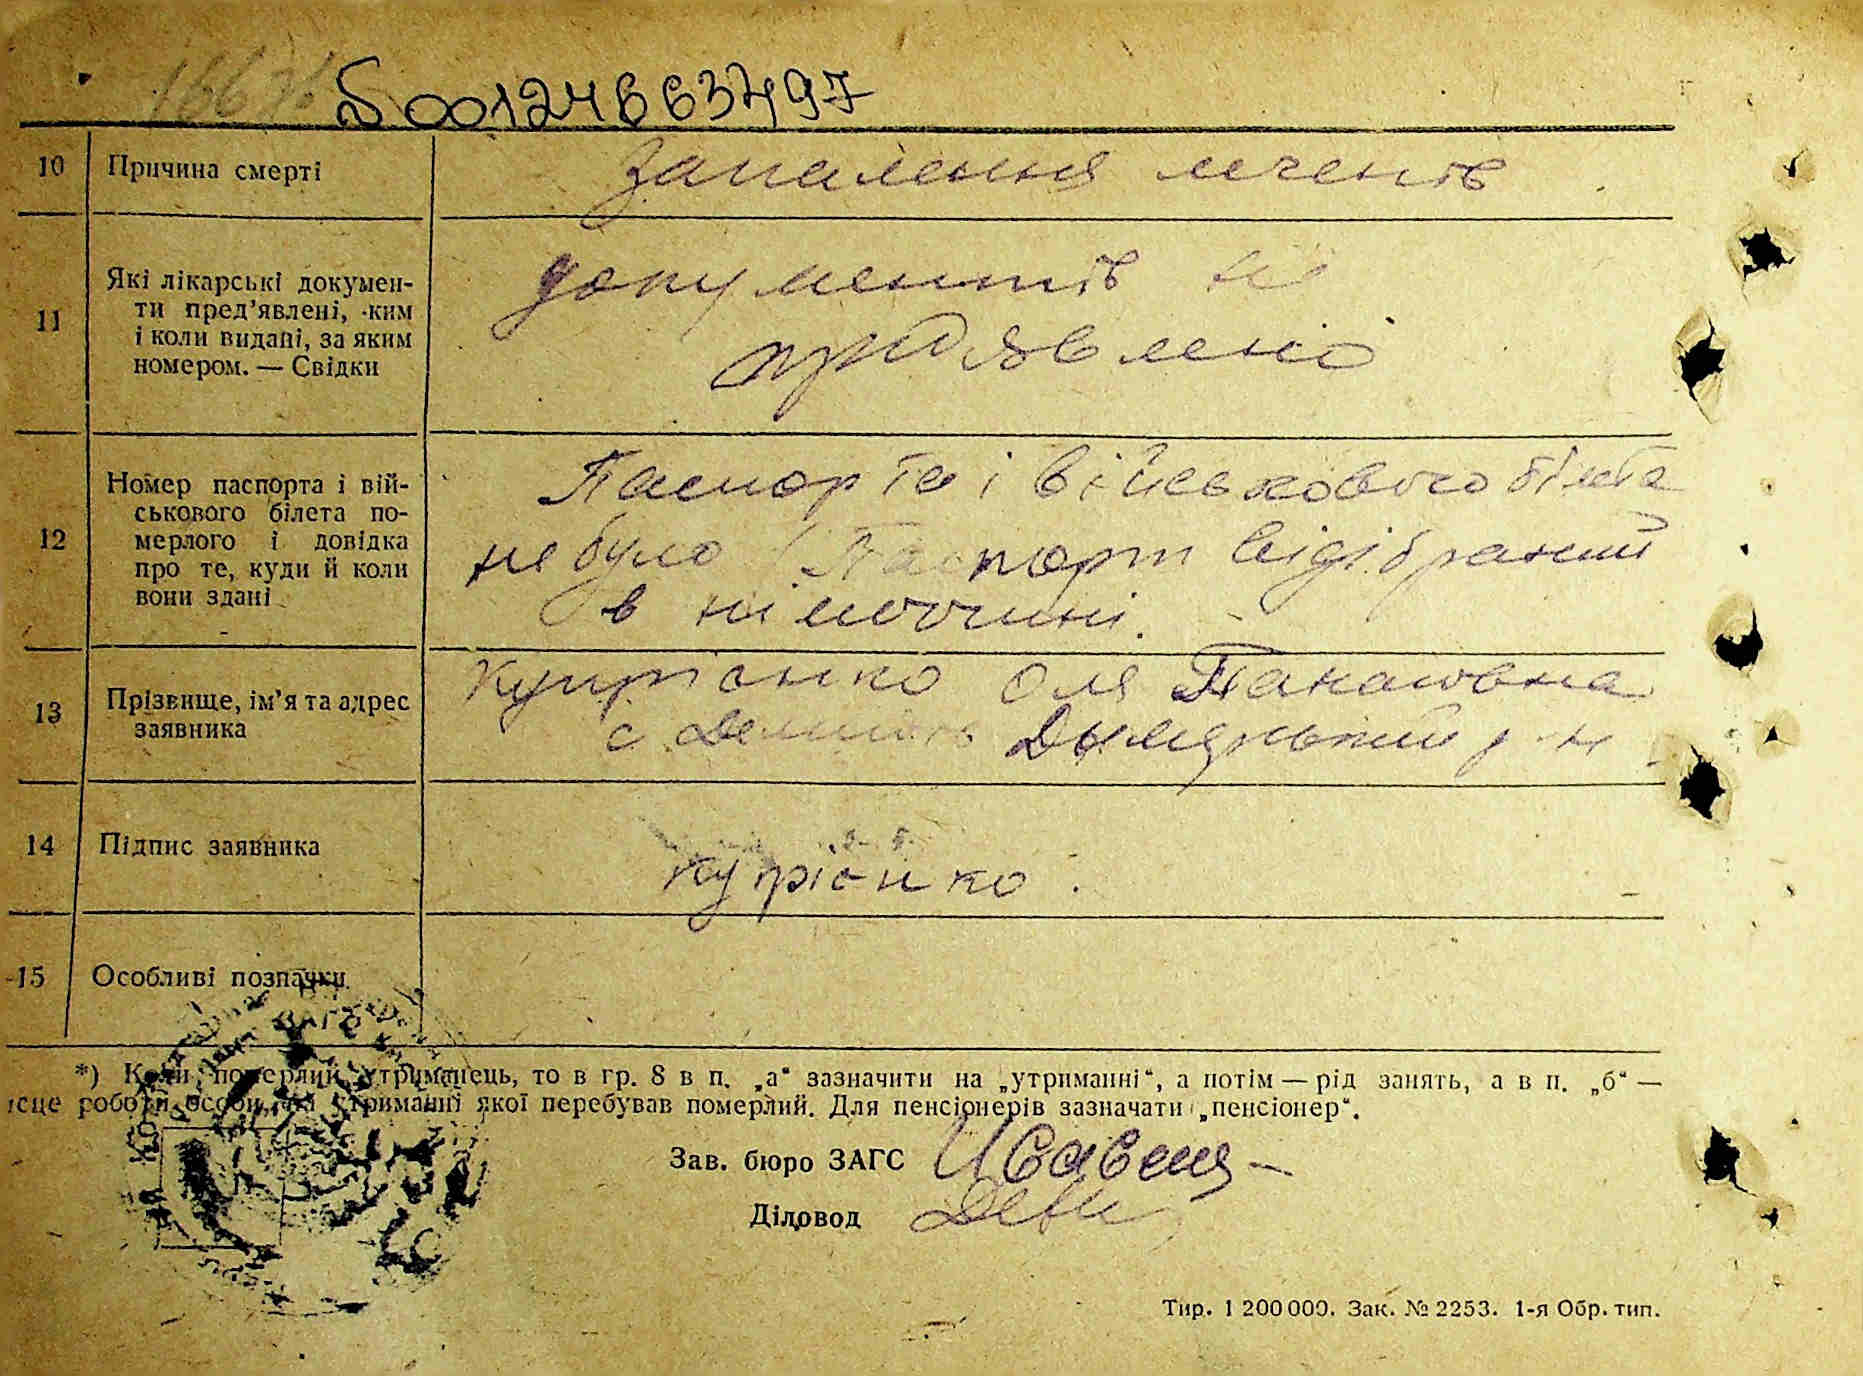 S 001246637497
10 Причина смерті
Запалення легенів
11 Які лікарські докумен-
ти пред’явлені, ким
і коли видані, за яким
номером. — Свідки
документів не
предявлено
12 Номер паспорта і вій-
ськового білета по-
мерлого і довідка
про те, куди й коли
вони здані
Паспорта і військового білета
не було Паспорт відібраний
в німеччині.
13 Прізвище, ім’я та адрес
заявника
Купрієнко Оля Панасовна
с. Димерський р-н
14 Підпис заявника
Купрієнко
15 Особливі позначки
ЗАГС
*) Коли померлий утриманець, то в гр. 8 в п. „а“ зазначити на „утриманні“, а потім — рід занять, а в п. „б“ —
ісце роботи особи, на утриманні якої перебував померлий. Для пенсіонерів зазначати „пенсіонер“.
Зав. бюро ЗАГС
Діловод
Тир. 1 200 000. Зак. № 2253. 1-я Обр. тип.